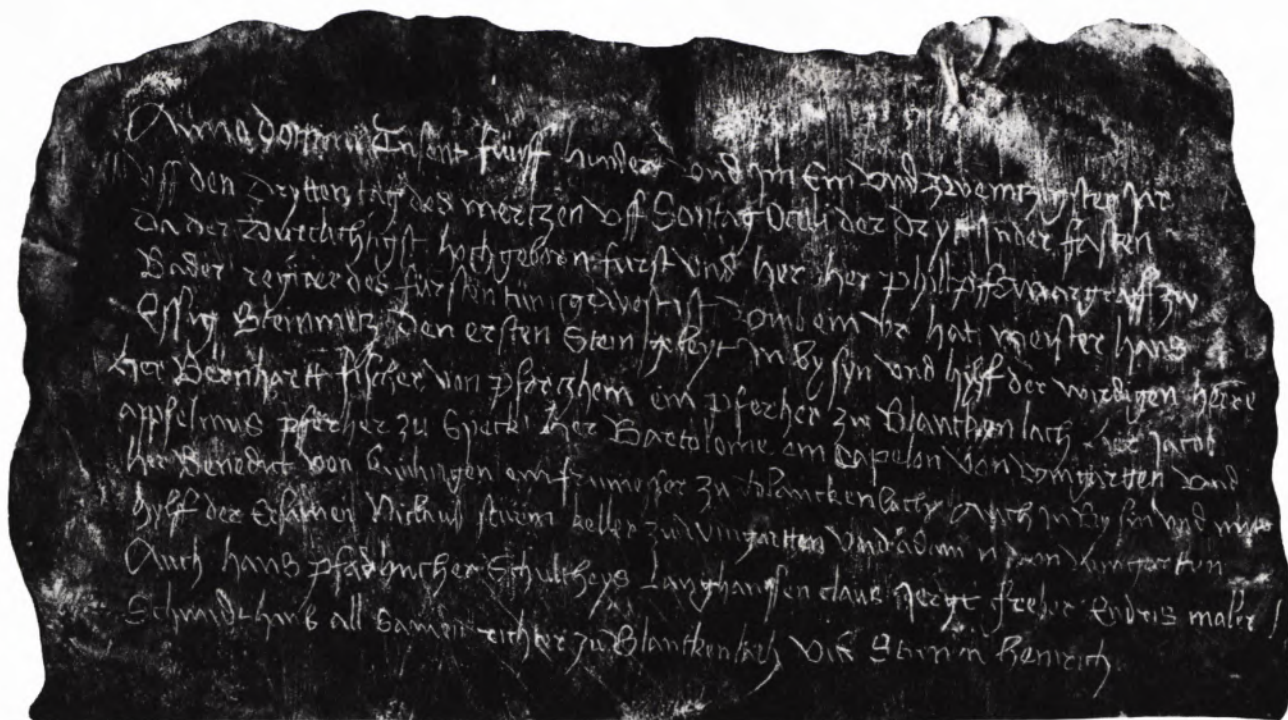 Anno domini Tusent fünff hundert vnd jm Ein vnd zwentzigsten jar
vff den drytten tag des mertzen vff Sontag Oculi der dryt jn der fasten
Da der durchlychtigst hochgeborn furst vnd her her philips marggraff zu
Baden regirer des fürsten ist vmb ein vr hat meister hans
Essig Steinmetz den ersten Stein geleyt jn by syn vnd hylf der wirdigen herre
her Bernhartt fischer von pfortzhem ein pferher zu Blanckenlach her Jacob
appfelmus pferher zu Speck her Bartolome ein Capelon von wingartten vnd
her Benedict von ein frumesser zu blanckenlach Auch jn By sin vnd
hylf der Ersamen Niclaus sturm keller zu wingartten vnd adam von wingartten
Auch hans Schultheys Langhansen claus jergt freher Endris maler
Schmidt hans all samen richter zu Blanckenlach Henrich